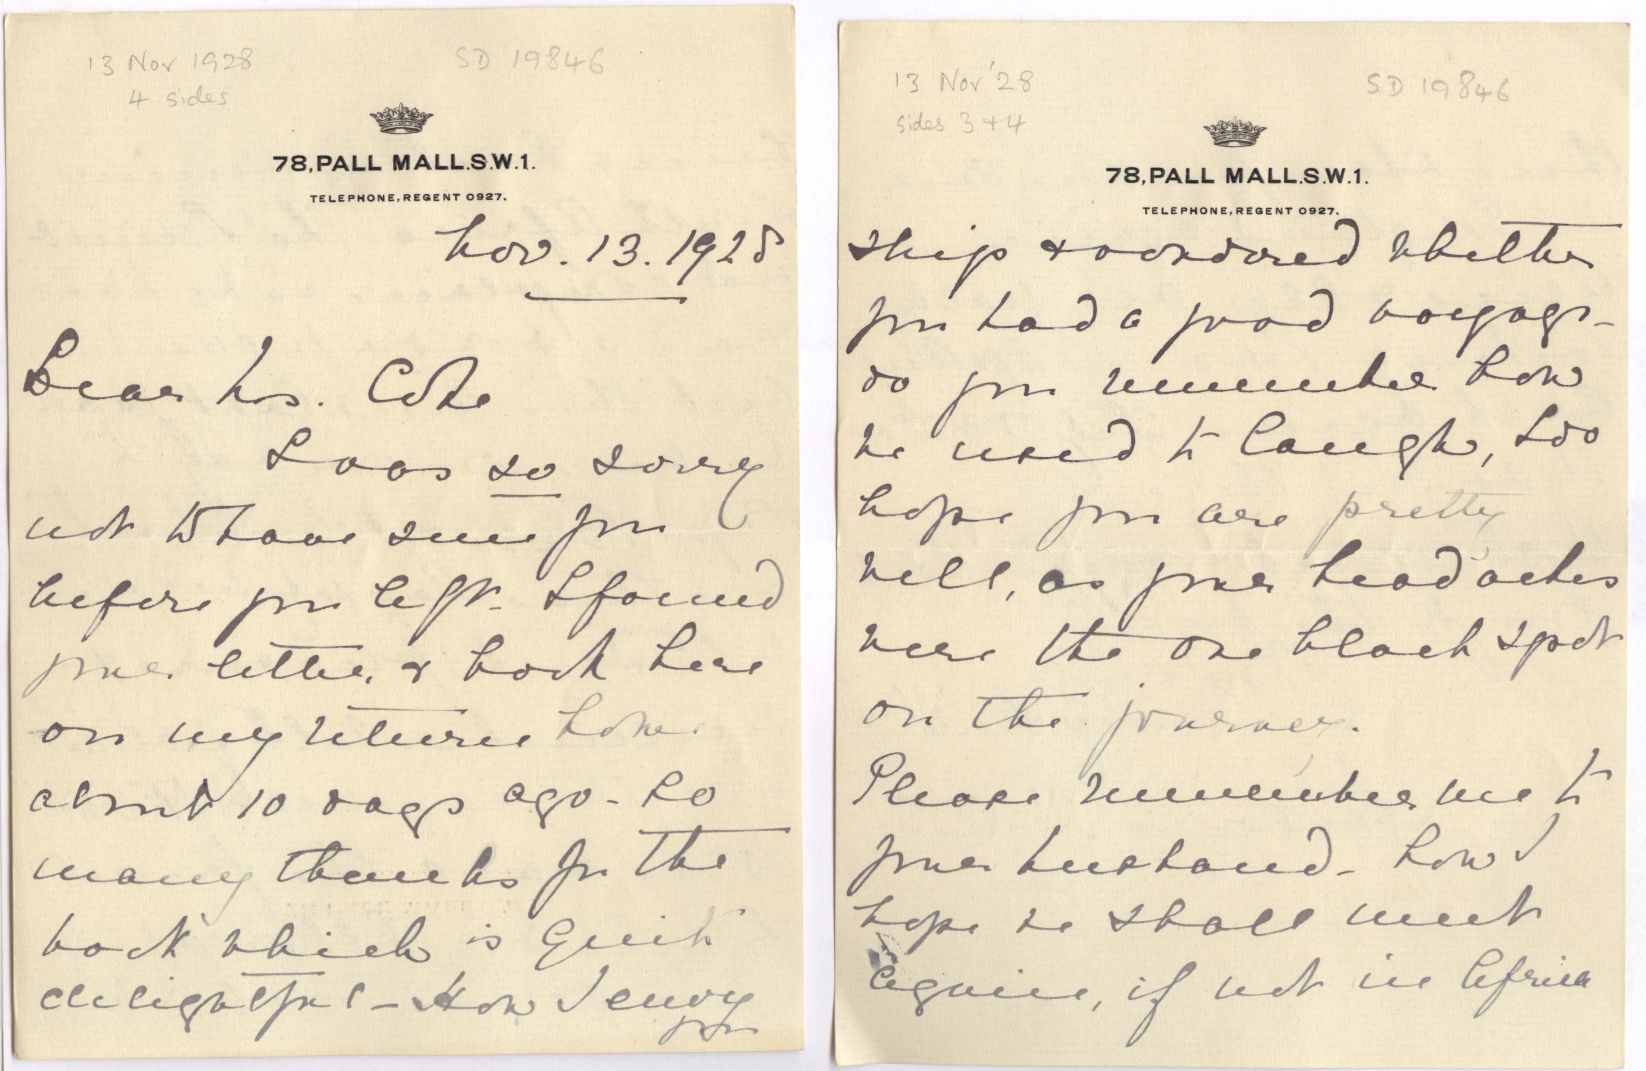 13 Nov 1928
4 sides
SD 19846
78, PALL MALL. S.W.1.
TELEPHONE, REGENT 0927.
Nov. 13. 1928
Dear Mrs.
I was so sorry
not to have seen you
before you left. I found
your letter & book here
on my return home
about 10 days ago - So
many thanks for the
book which is quite
delightful - How I envy
you
13 Nov '28
sides 3+4
SD 19846
78, PALL MALL. S.W.1.
TELEPHONE, REGENT 0927.
ship & wondered whether
you had a good voyage -
do you remember how
we used to laugh, I do
hope you are pretty
well, as your headaches
were the one black spot
on the journey.
Please remember me to
your husband - how I
hope we shall meet
again, if not in Africa